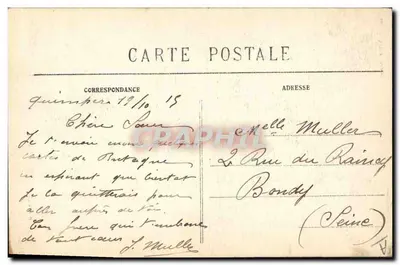 CARTE POSTALE
CORRESPONDANCE
ADRESSE
Quimper 19/10 15
Chère Sœur
Je t'envoie encore
cartes de Bretagne
en espérant que bientôt
Je la quitterais pour
aller auprès de toi
Ton frère qui t'embrasse
de tout cœur J. Muller
Melle Muller
2 Rue du Raincy
Bondy
(Seine)